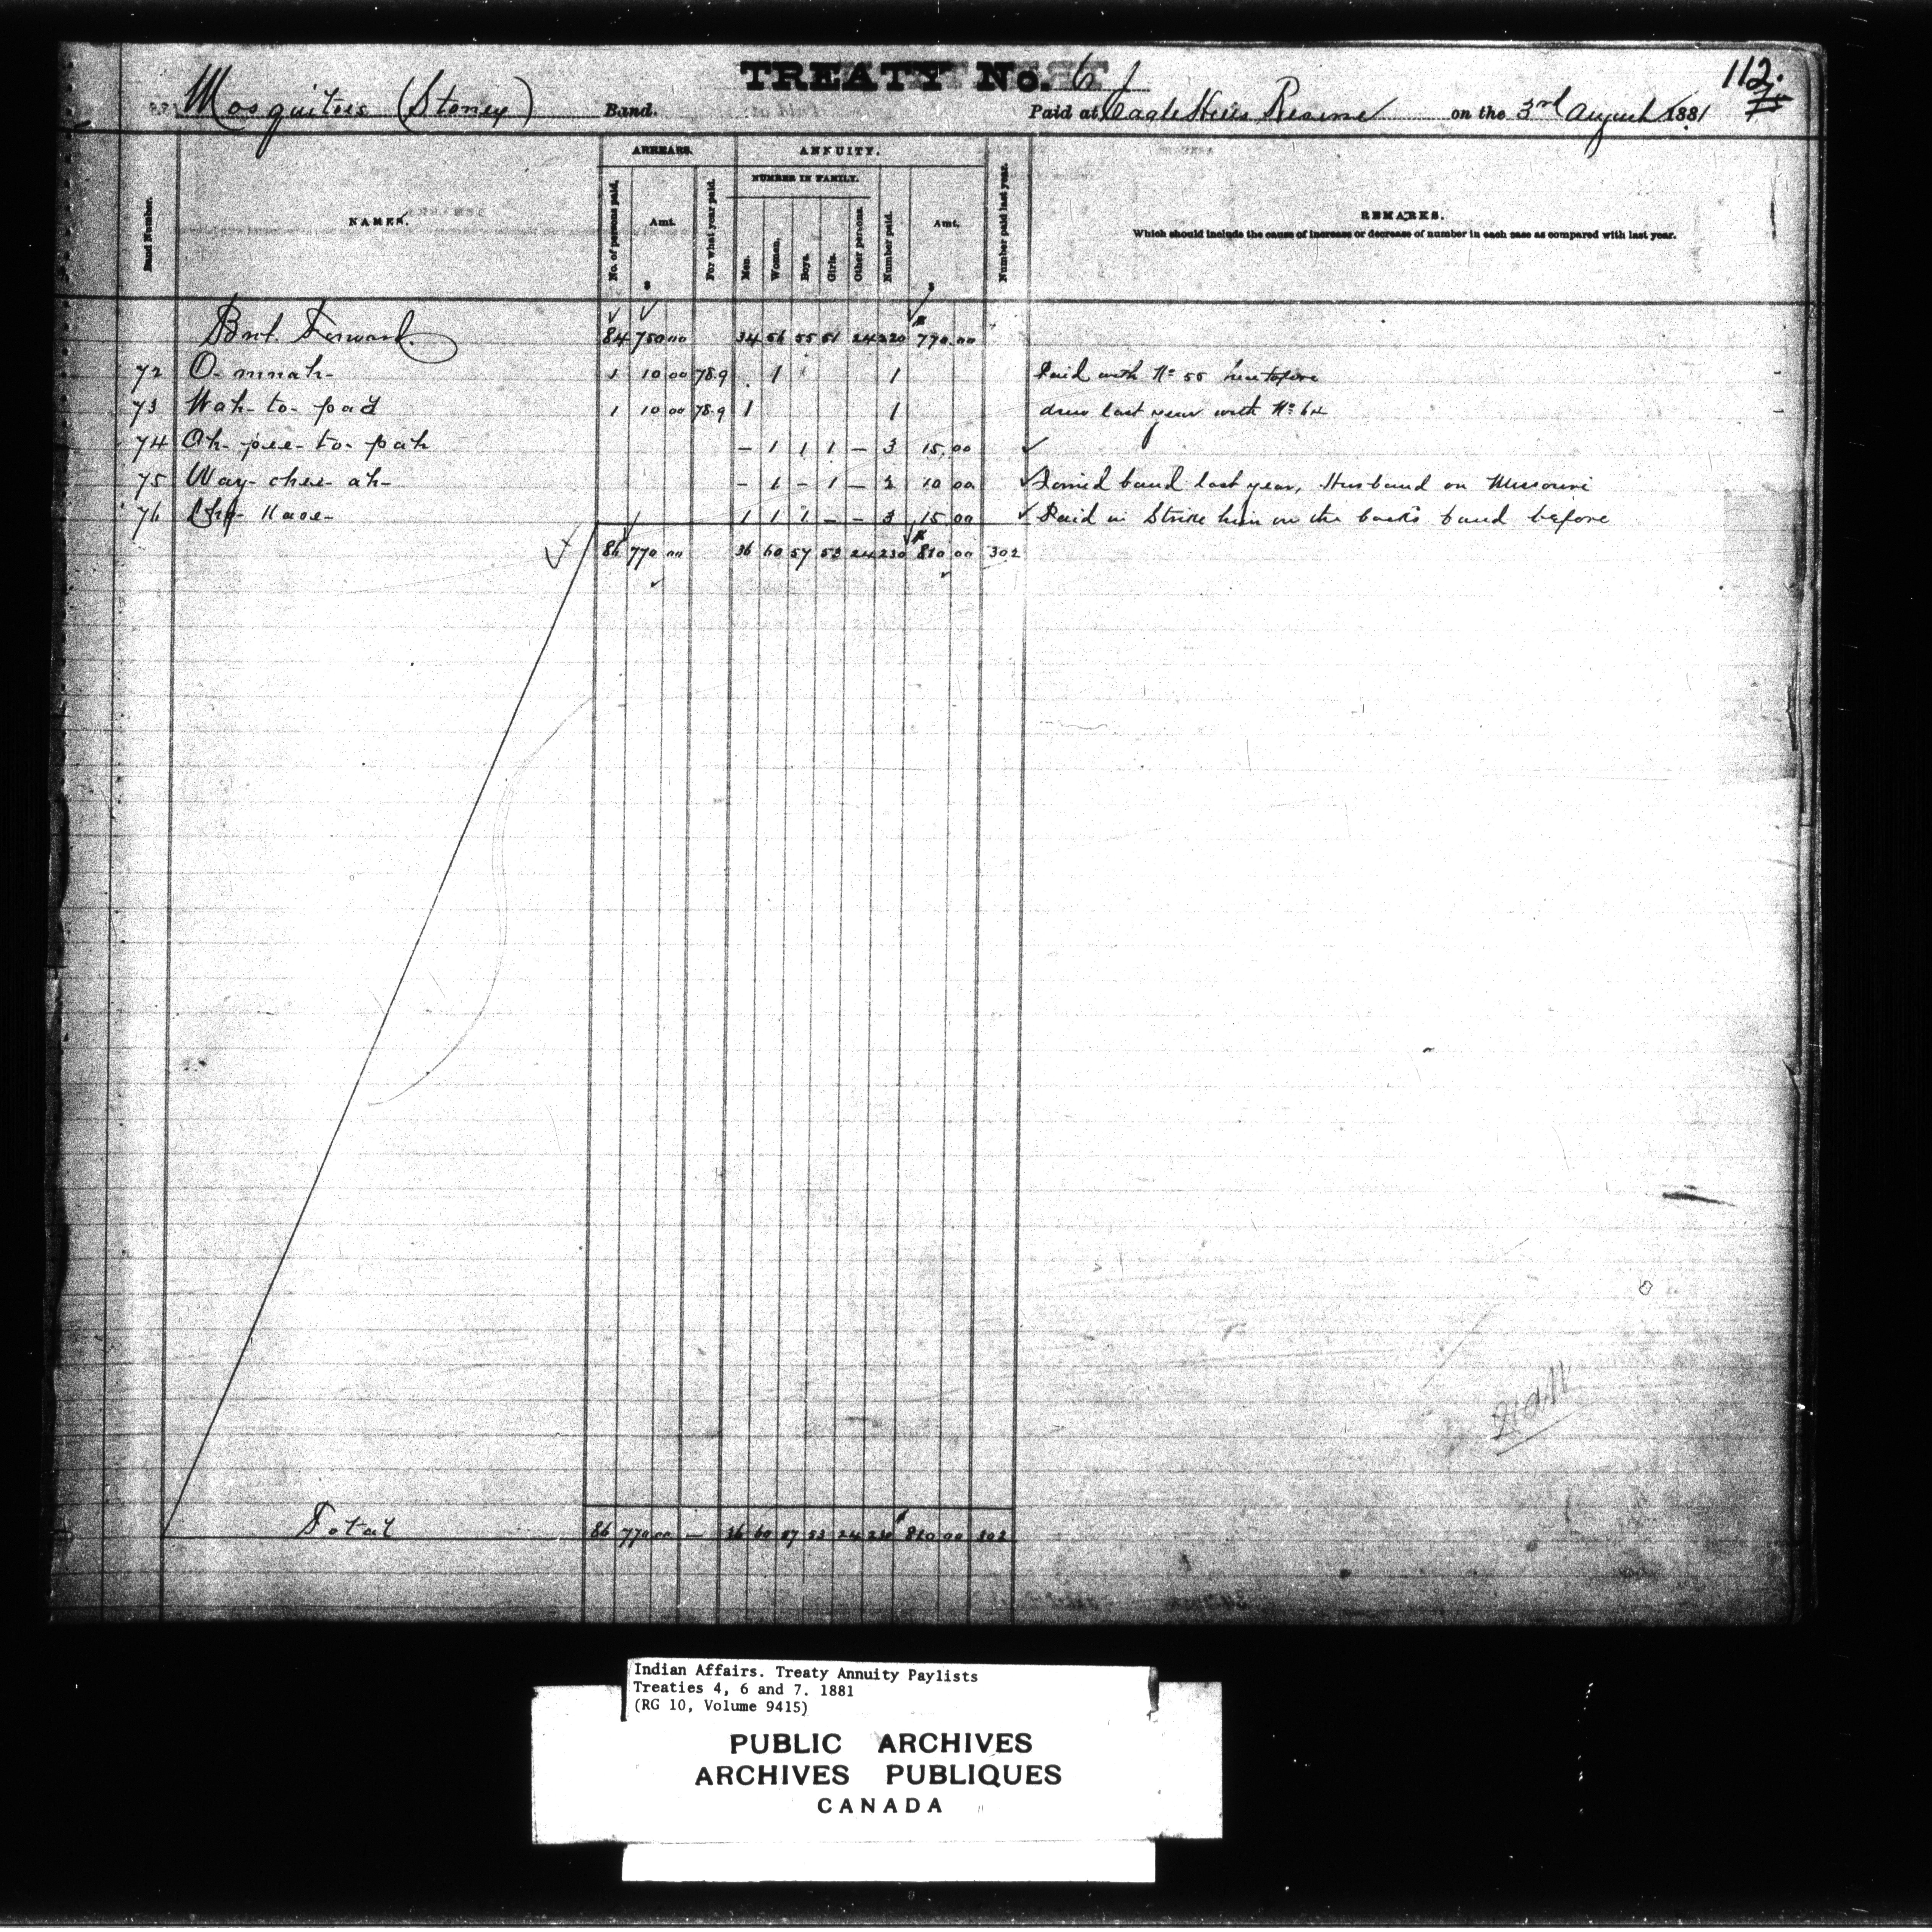 TREATY No. 6
112.
Mosquitoes (Stoney) Band. Paid at Eagle Hills Reserve on the 3rd August 1881
Band Number. NAMES. ARREARS. ANNUITY. REMARKS.
No. of persons paid. Amt. $ For what year paid. NUMBER IN FAMILY. Men. Women. Boys. Girls. Other persons. Number paid. Amt. $ Number paid last year.
Which should include the cause of increase or decrease of number in each case as compared with last year.
Brot. Forward. 84 750 00 34 56 55 51 24 220 790.00
72 O-mnah- 1 10 00 78.9 1 1 Paid with No 55 heretofore
73 Wah-to-pad 1 10 00 78.9 1 1 drew last year with No 64
74 Oh-pee-to-pah – 1 1 1 – 3 15.00
75 Way-chee-ah- – 1 – 1 – 2 10 00 Joined band last year, Husband on Missouri
76 1 1 1 – – 3 15 00 Paid in Strike him on the back's band before
86 770 00 36 60 57 53 24 230 810 00 302
Total 86 770 00 – 36 60 57 53 24 230 810 00 302
Indian Affairs. Treaty Annuity Paylists
Treaties 4, 6 and 7. 1881
(RG 10, Volume 9415)
PUBLIC ARCHIVES
ARCHIVES PUBLIQUES
CANADA